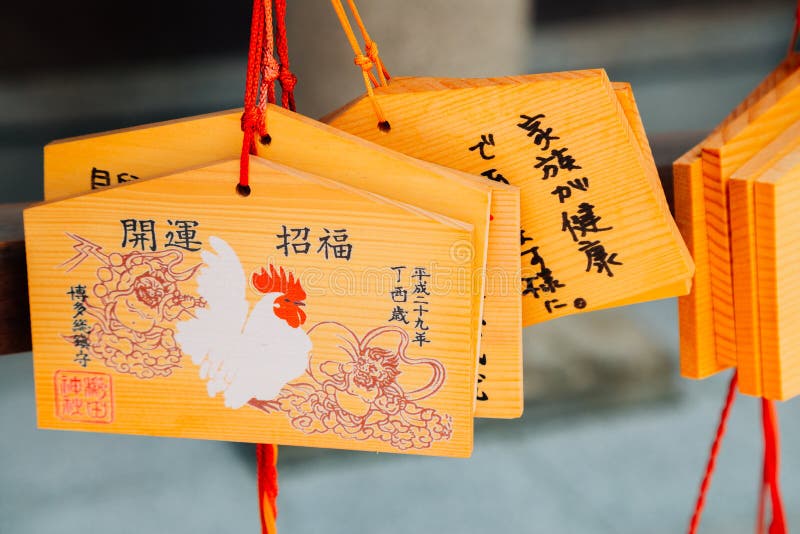 開運 招福
平成二十九年
丁酉歳
博多総鎮守
櫛田
神社
家族が健康
で
ます様に。